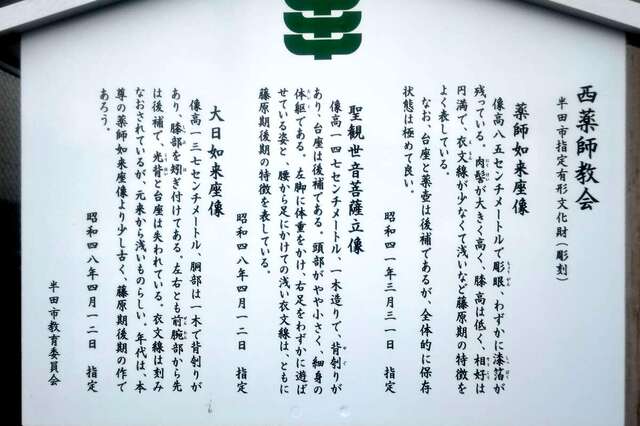 西薬師教会
半田市指定有形文化財(彫刻)
薬師如来座像
像高八五センチメートルで彫眼、わずかに漆箔が
残っている。肉髻が大きく高く、膝高は低く、相好は
円満で、衣文線が少なくて浅いなど藤原期の特徴を
よく表している。
なお、台座と薬壺は後補であるが、全体的に保存
状態は極めて良い。
昭和四一年三月三一日 指定
聖観世音菩薩立像
像高一四七センチメートル、一木造りで、背刳りが
あり、台座は後補である。頭部がやや小さく、細身の
体躯である。左脚に体重をかけ、右足をわずかに遊ば
せている姿と、腰から足にかけての浅い衣文線は、ともに
藤原期後期の特徴を表している。
昭和四八年四月一二日 指定
大日如来座像
像高一三七センチメートル、胴部は一木で背刳りが
あり、膝部を矧ぎ付けてある。左右とも前腕部から先
は後補で、光背と台座は失われている。衣文線は刻み
なおされているが、元来から浅いものらしい。年代は、本
尊の薬師如来座像より少し古く、藤原期後期の作で
あろう。
昭和四八年四月一二日 指定
半田市教育委員会